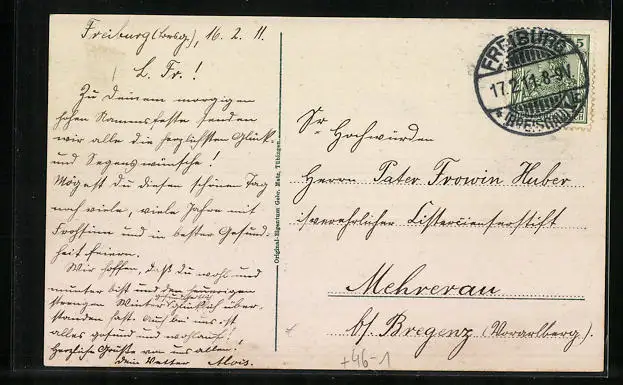 Freiburg (Brsg.), 16. 2. 11.
L. Fr.!
Zu Deinem morgigen
hohen Namensfeste senden
wir alle die herzlichsten Glück-
und Segenswünsche!
Mögest du diesen schönen Tag
noch viele, viele Jahre mit
Frohsinn und in bester Gesund-
heit feiern.
Wir hoffen, daß du wohl und
munter bist und den heurigen
strengen Winter glücklich über-
standen hast. Auch bei uns ist
alles gesund und wohlauf!
Herzliche Grüße von uns allen!
Dein Vetter Alois.
Original-Eigentum Gebr. Metz, Tübingen.
FREIBURG
17.2.11. 8-9V.
* (BREISGAU)
5
Sr Hochwürden
Herrn Pater Frowin Huber
Cistercienserstift
Mehrerau
b/ Bregenz (Vorarlberg).
+46-1